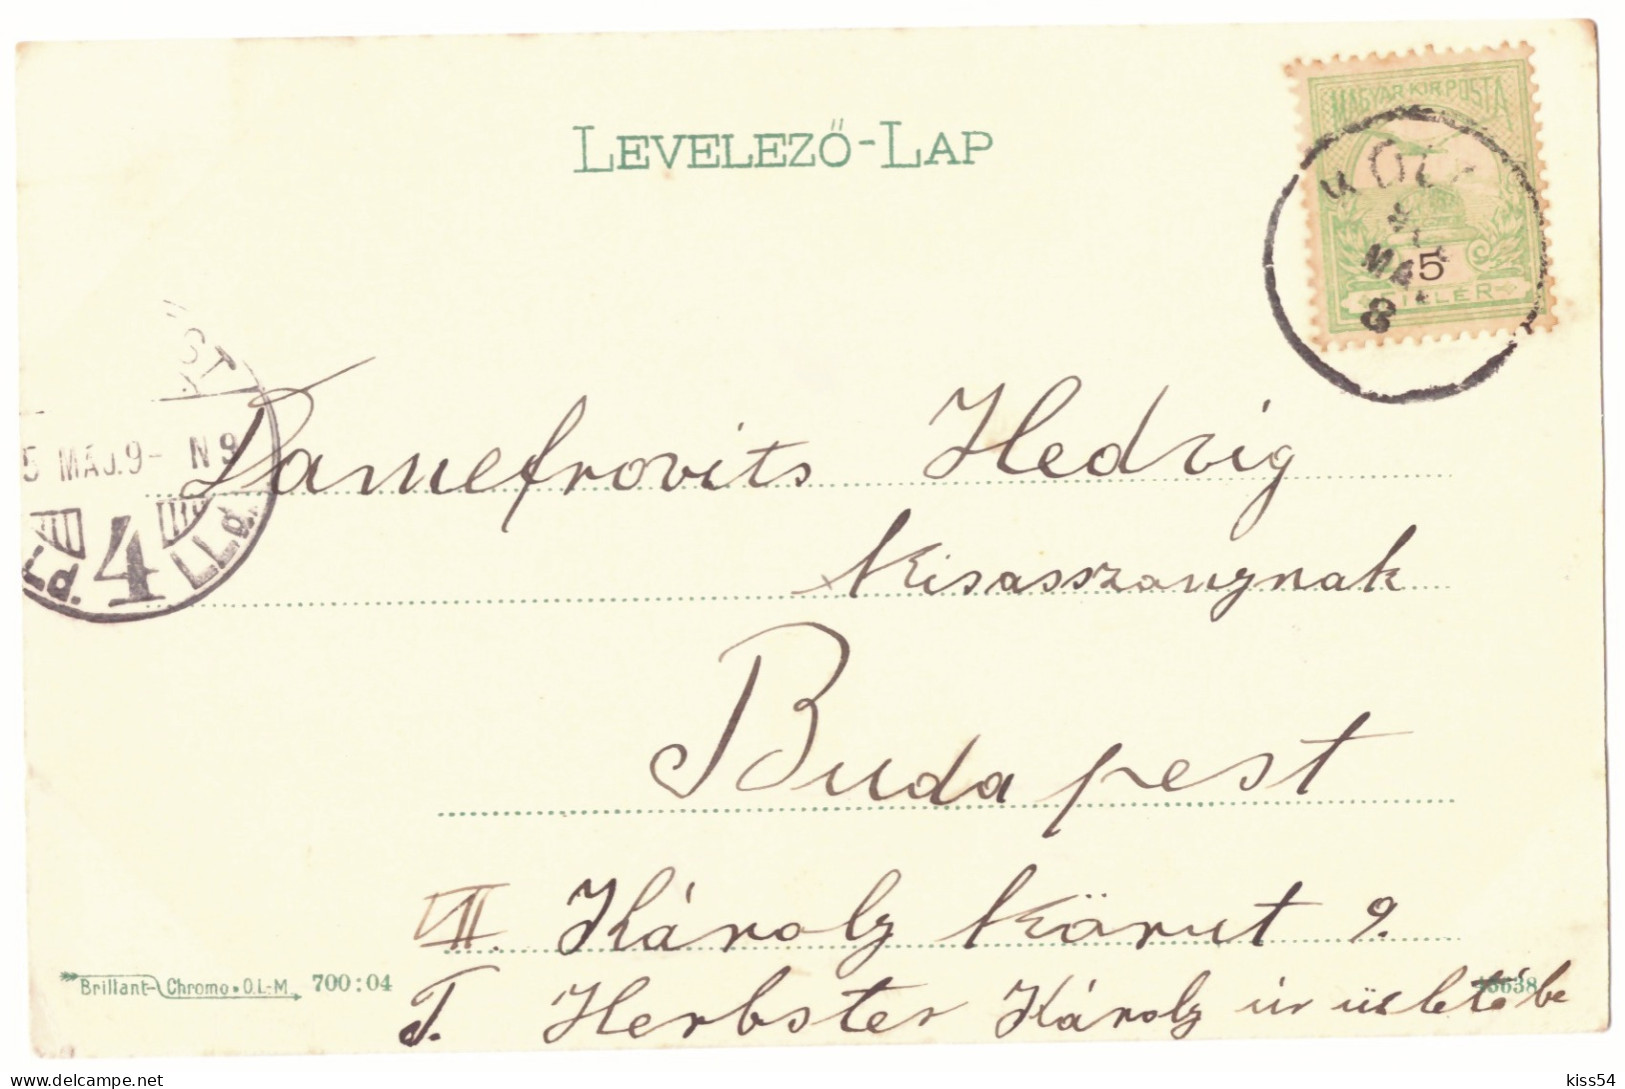 LEVELEZŐ-LAP
MAGYAR KIR. POSTA
5
FILLÉR
MÁJ
8
ST
5 MÁJ.9- N 9
4
Damefrovits Hedvig
Kisasszonynak
Budapest
VII. Károly Körut 9.
T. Herbster Károly úr üzletébe
Brillant-Chromo • O.L-M. 700:04
45638
delcampe.net
kiss54